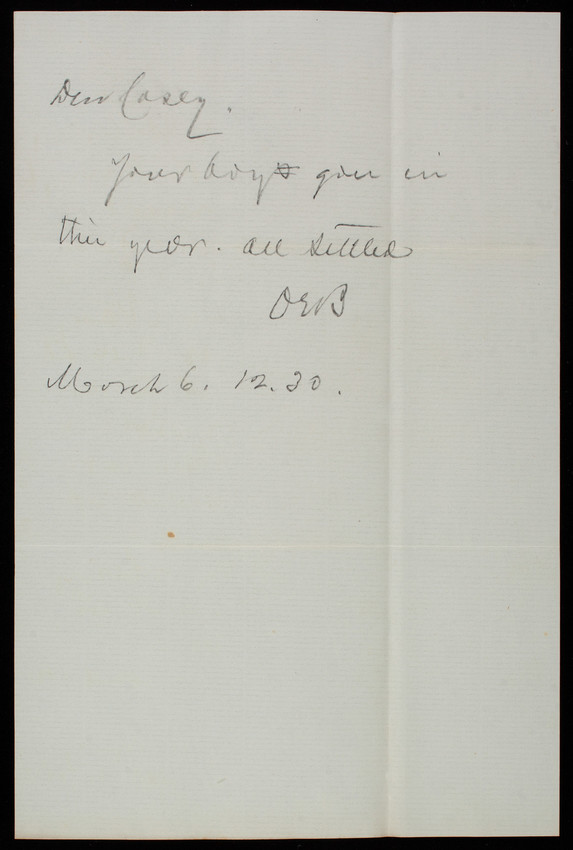 Dear Casey.
Your boy goes in
this year. all settled
OEB
March 6. 12.30.